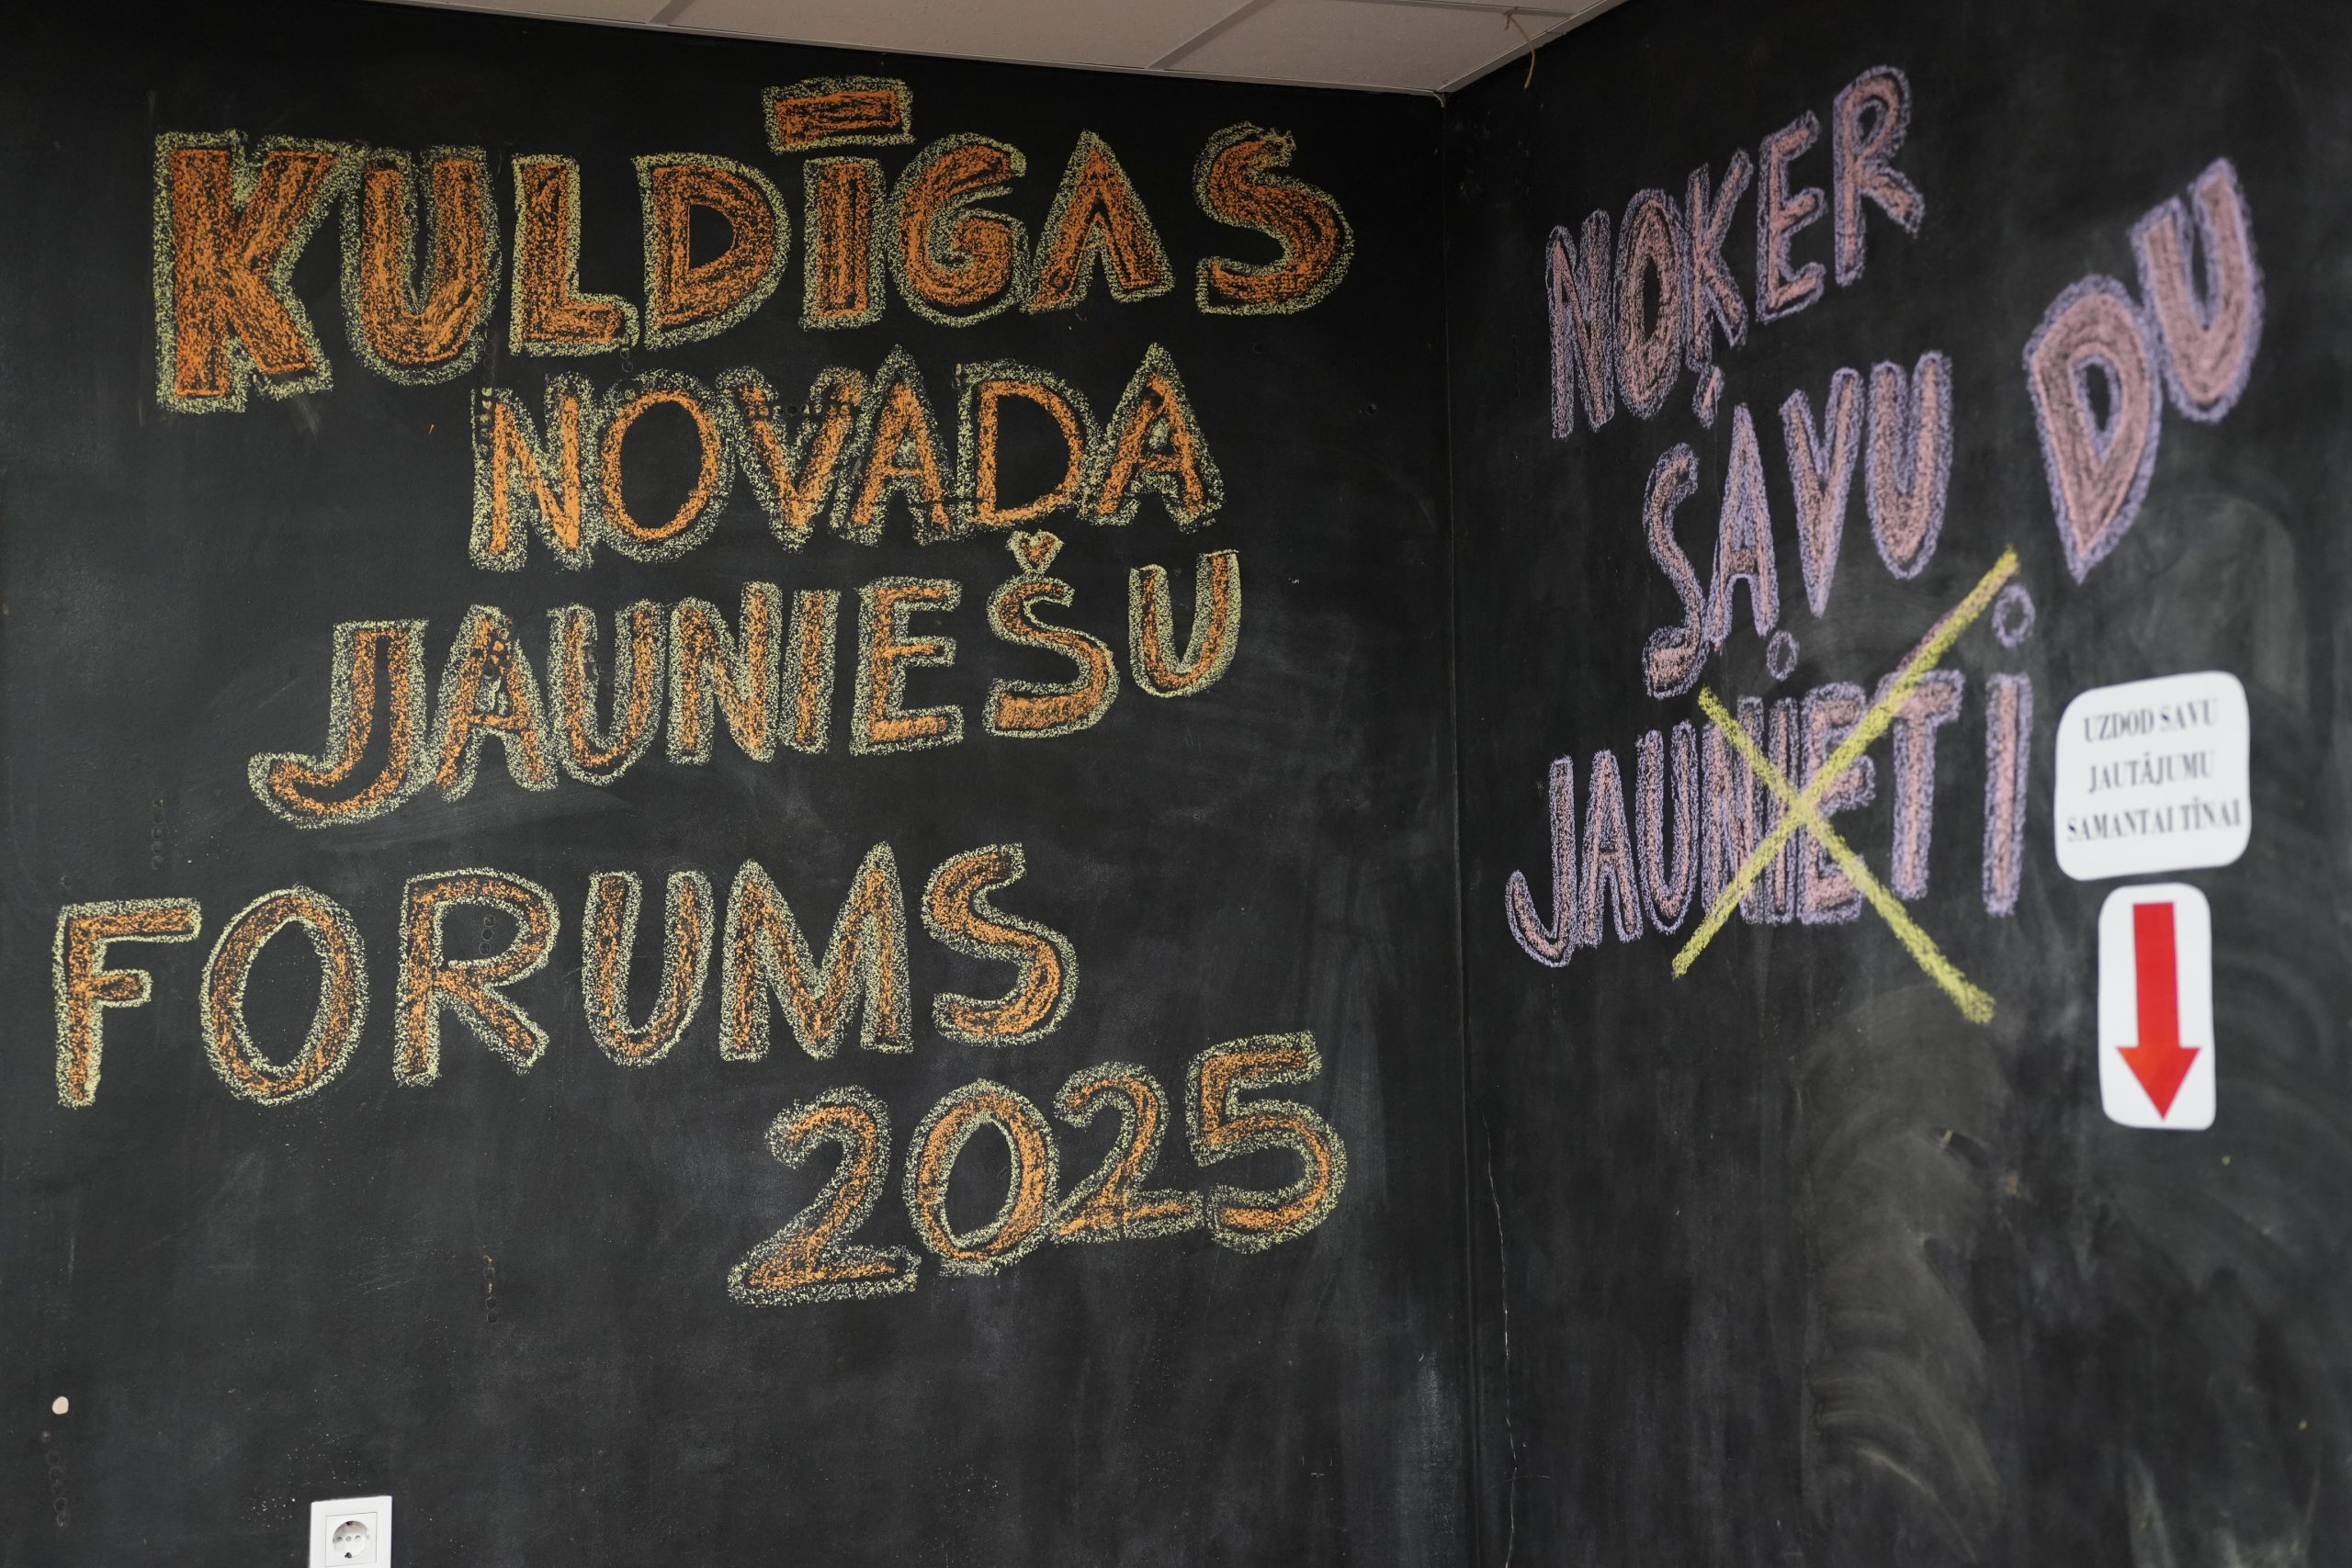 KULDĪGAS
NOVADA
JAUNIEŠU
FORUMS
2025
NOĶER
SAVU DU
JAUNIETI
UZDOD SAVU
JAUTĀJUMU
SAMANTAI TĪNAI